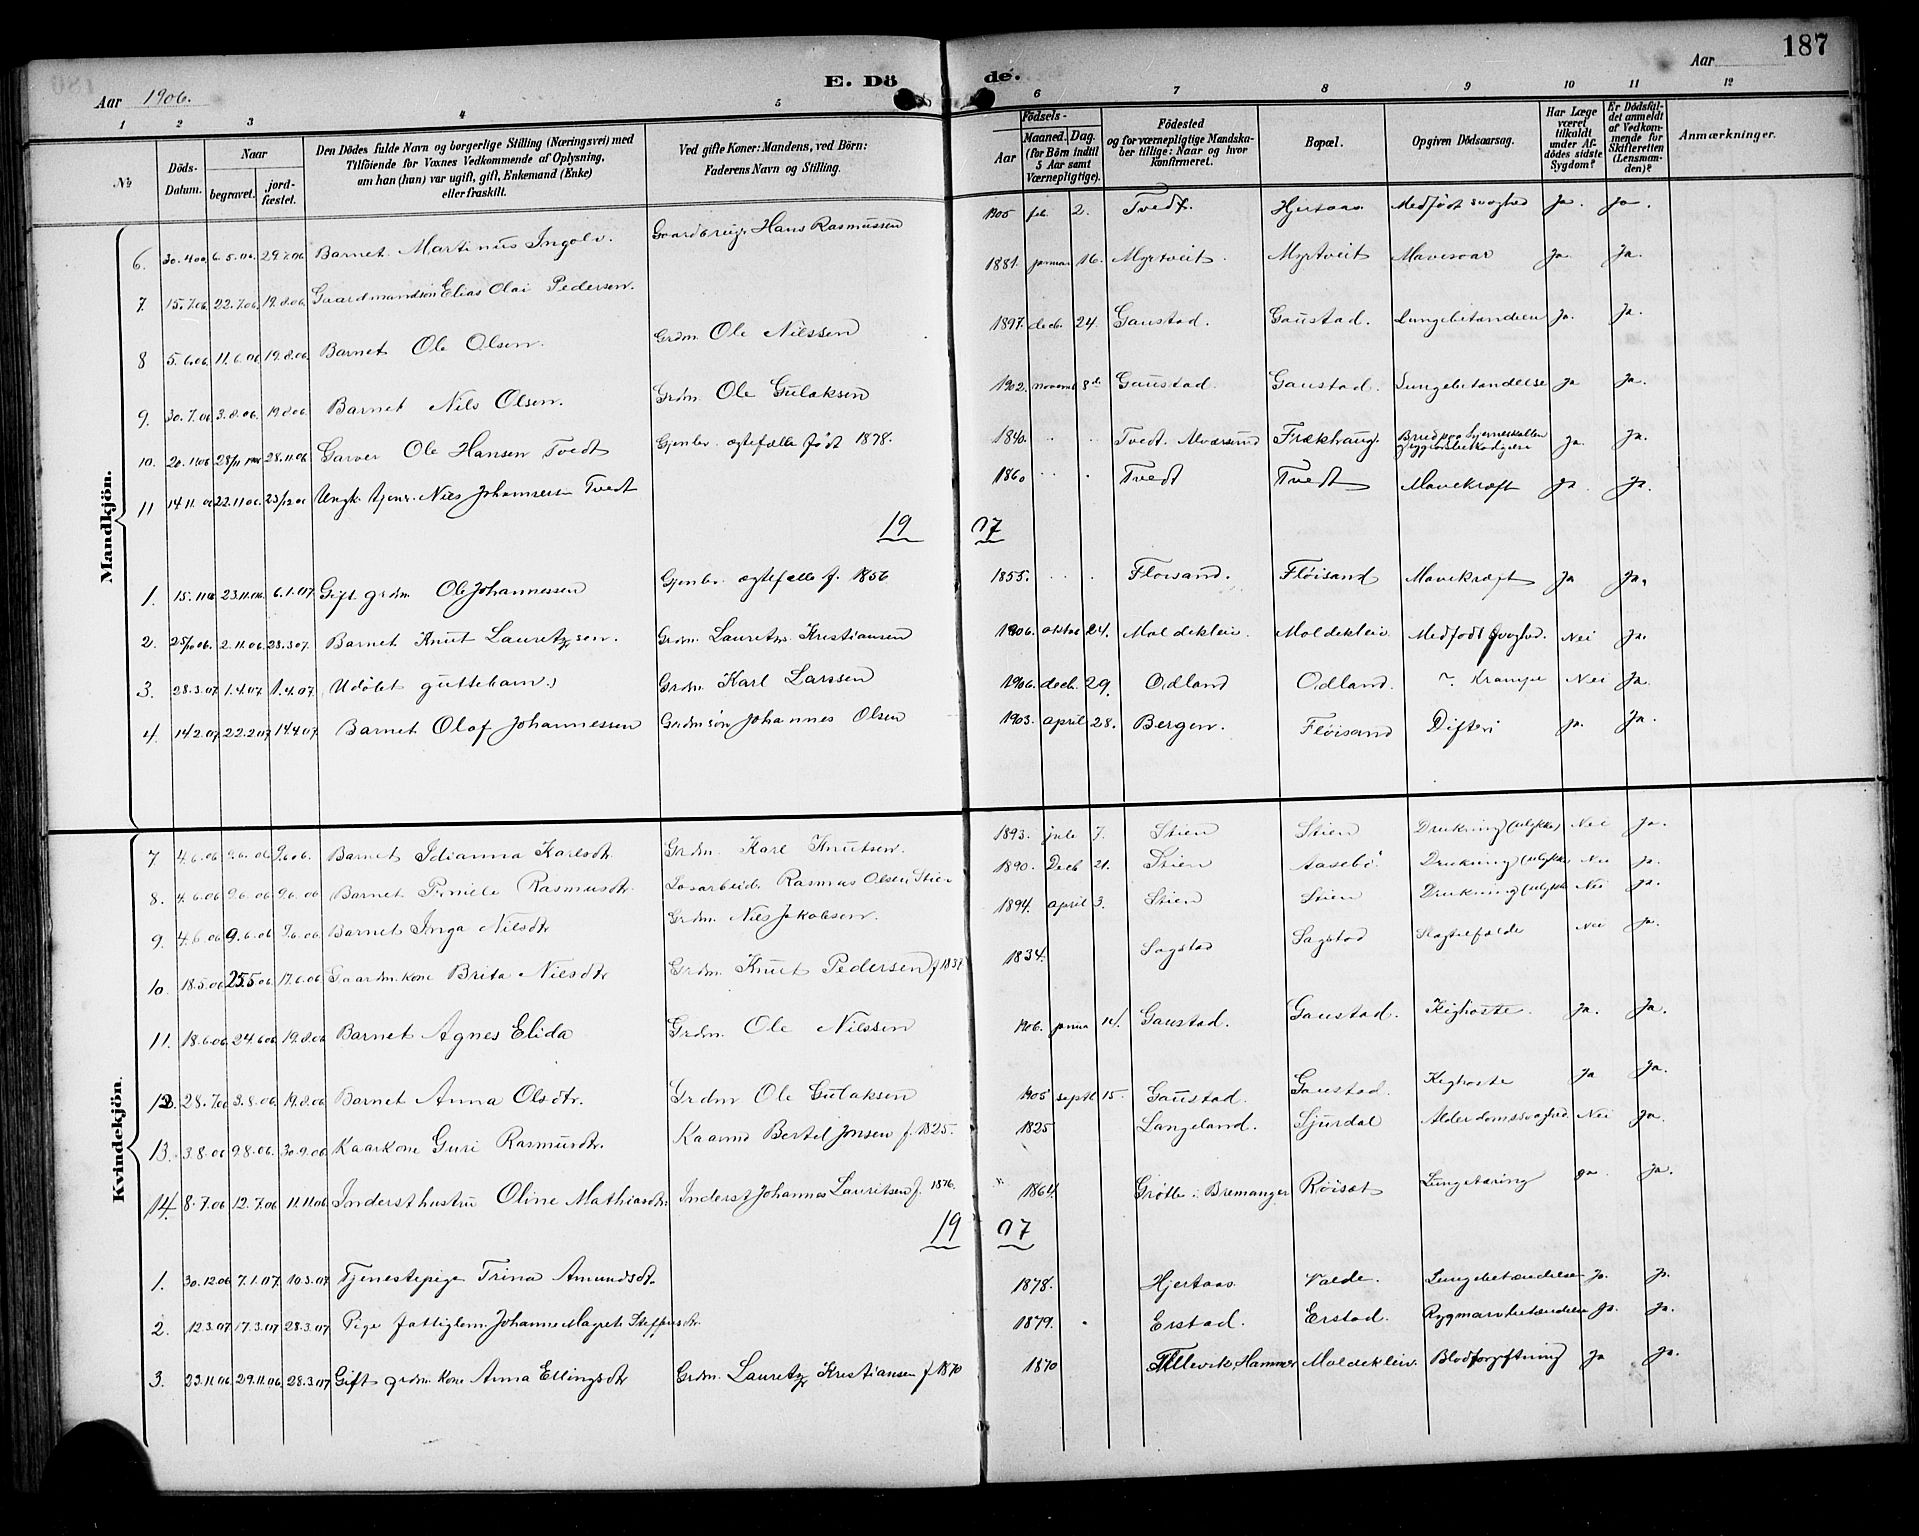 187
E. Dö de.
Aar 1906.
Aar
1 2 3 4 5 6 7 8 9 10 11 12
№
Döds-Datum.
Naar
begravet.
jord-fæstet.
Den Dödes fulde Navn og borgerlige Stilling (Næringsvei) med Tilföiende for Voxnes Vedkommende af Oplysning, om han (hun) var ugift, gift, Enkemand (Enke) eller fraskilt.
Ved gifte Koner: Mandens, ved Börn: Faderens Navn og Stilling.
Födsels-
Aar
Maaned.
Dag.
(for Börn indtil 5 Aar samt Værnepligtige).
Födested og for værnepligtige Mandskaber tillige: Naar og hvor konfirmeret.
Bopæl.
Opgiven Dödsaarsag.
Har Læge været tilkaldt under Afdödes sidste Sygdom?
Er Dödsfaldet anmeldt af Vedkommende for Skifteretten (Lensmanden)?
Anmærkninger.
Mandkjön.
6. 30.4.06 6.5.06. 29.7.06 Barnet Martinus Ingolv. Gaardbrug. Hans Rasmussen 1905 feb. 2. Tvedt. Hjertaas Medfödt svaghed Ja. Ja.
7. 15.7.06 22.7.06 19.8.06 Gaardmandsön Elias Olai Pedersen. 1881. januar 16. Myrtveit. Myrtveit Mavesaar Ja. Ja.
8 5.6.06. 11.6.06 19.8.06. Barnet Ole Olsen. Grdm. Ole Nilssen 1897. decb. 24. Gaustad. Gaustad. Lungebetændelse Ja. Ja.
9. 30.7.06 3.8.06. 19.8.06 Barnet Nils Olsen. Grdm. Ole Gulaksen 1902. novemb 8de Gaustad. Gaustad. Lungebetændelse ja Ja.
10. 20.11.06 28/11 1906 28.11.06 Garver Ole Hansen Tvedt Gjenlev. ægtefælle født 1878. 1840 Tvedt. Alværsund Frækhaug. Brud paa hjerneskallen Ja. Ja.
11 14.11.06 22.11.06. 23/12 06 Ungk. tjener Nils Johannesen Tvedt 1860 Tvedt Tvedt Mavekræft Ja. Ja.
19 07
1. 15.11.06 23.11.06. 6.1.07. Gift grdm Ole Johannessen Gjenlev. ægtefælle f. 1856 1855. Floisand. Flöisand Mavekræft Ja Ja.
2. 25/10 06. 2.11.06. 23.3.07. Barnet Knut Lauretzsen. Grdm. Lauretz Kristiansen 1906. oktob 24. Moldekleiv. Moldekleiv. Medfødt svaghed. Nei Ja.
3. 28.3.07. 1.4.07. 1.4.07. Udöbt guttebarn. Grdm. Karl Larssen 1906. decb. 29. Odland Odland. Krampe Nei Ja.
4. 14.2.07. 22.2.07 14.4.07. Barnet Olaf Johannessen Grdmsön Johannes Olsen 1903. april 28. Bergen. Flöisand Difteri ja. Ja.
Kvindekjön.
7. 4.6.06 9.6.06 9.6.06. Barnet Idianna Karlsdtr. Grdm. Karl Knutsen. 1893. jule 7. Stien Stien Drukning (ulykke) Nei Ja.
8. 4.6.06 9.6.06 9.6.06 Barnet Pernele Rasmusdtr. Losarbeider Rasmus Olsen Stien 1890. Decb 21. Stien Aasebö Drukning (ulykke) Nei Ja.
9. 4.6.06 9.6.06 9.6.06 Barnet Inga Nilsdtr Grdm. Nils Jakobsen. 1894. april 3. Stien Stien Drukning (ulykke Nei Ja.
10. 18.5.06 25.5.06. 17.6.06 Gaardm.kone Brita Nilsdtr Grdm. Knut Pedersen f 1837 1834. Sagstad Sagstad Slagtilfælde Nei Ja.
11. 18.6.06 24.6.06 19.8.06 Barnet Agnes Elida Grdm. Ole Nilssen 1906. janua Gaustad. Gaustad. Kighoste. Ja. Ja.
12. 28.7.06 3.8.06 19.8.06 Barnet Anna Olsdtr. Grdm Ole Gulaksen 1905 septb 15. Gaustad. Gaustad. Kighoste Ja Ja.
13. 3.8.06 9.8.06. 30.9.06 Kaarkone Guri Rasmusdtr. Kaarmd Bertel Jonsen f. 1825. 1825 Langeland. Sjurdal Alderdomssvaghed Nei Ja.
14. 8.7.06 12.7.06 11.11.06 Indersthustru Oline Mathiasdtr. Inderst Johannes Lauritsen f. 1876. 1864 Grotle i Bremanger Röiset Lungetæring ja. Ja.
19 07
1. 30.12.06 7.1.07. 10.3.07. Tjenestepige Trina Amundsdtr. 1878. Hjertaas Valde. Lungebetændelse Ja. Ja.
2. 12.3.07 17.3.07 28.3.07. Pige fattiglem Johanne Magrete Steffensdtr. 1879. Erstad. Erstad. Rygmarvbetændelse Ja. Ja.
3. 23.11.06 29.11.06 28.3.07 Gift grdm kone Anna Ellingsdtr Grdm. Lauretz Kristiansen f 1870 1870 Hammer Moldekleiv. Blodforgiftning Ja Ja.